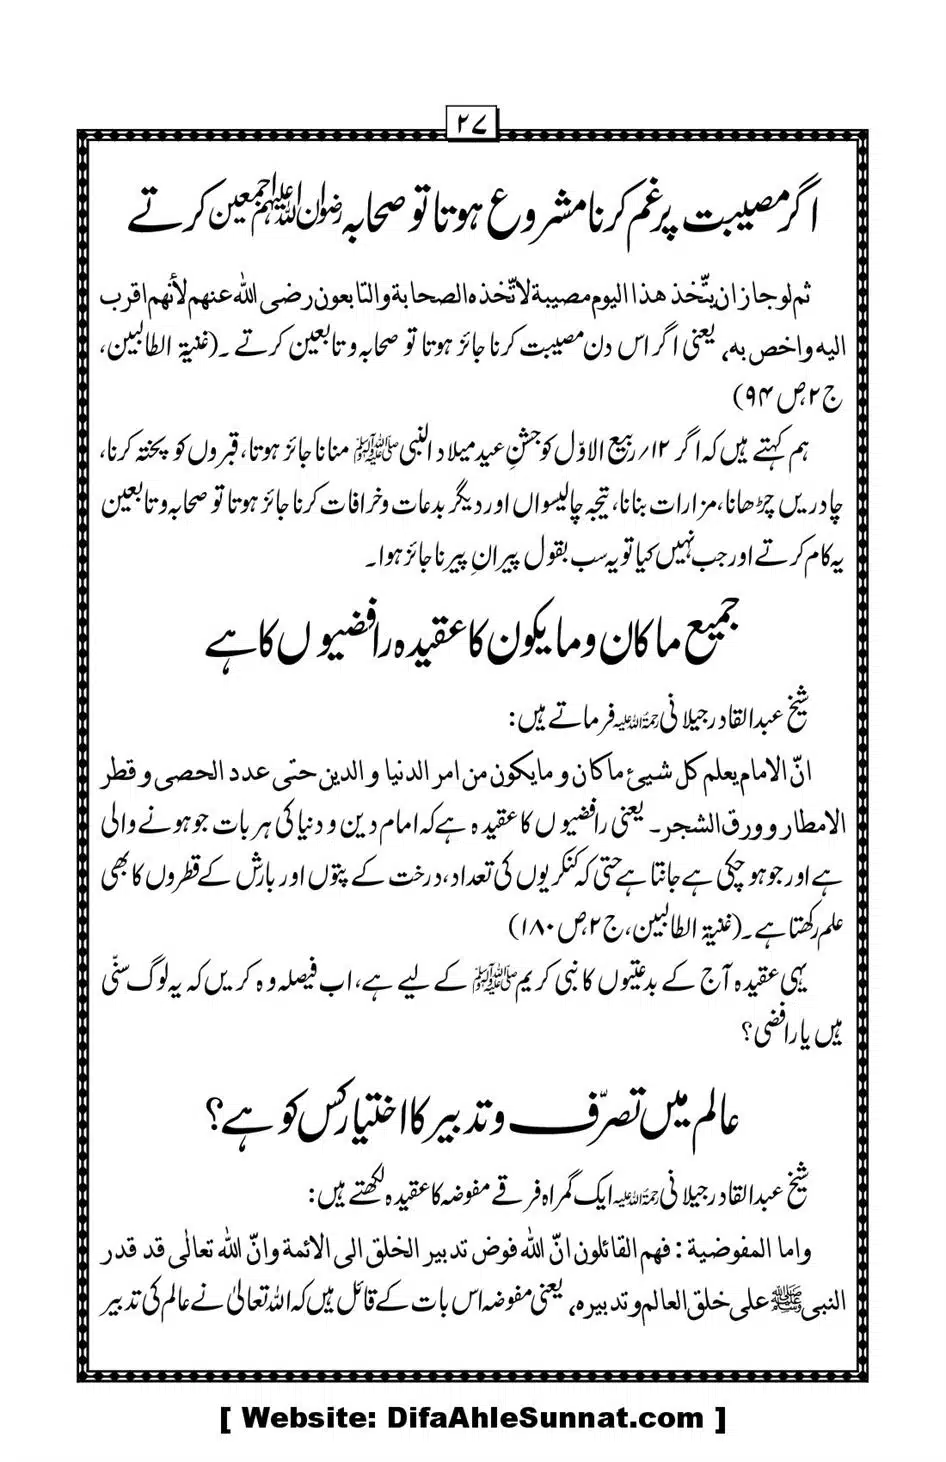 ۲۷
اگر مصیبت پر غم کرنا مشروع ہوتا تو صحابہ رضوان اللہ علیہم اجمعین کرتے
ثم لو جاز ان یتّخذ هذا الیوم مصیبة لاتّخذه الصحابة والتابعون رضی الله عنهم لأنهم اقرب
الیه واخص به، یعنی اگر اس دن مصیبت کرنا جائز ہوتا تو صحابہ و تابعین کرتے ۔ (غنیۃ الطالبین،
ج۲ص۹۴)
ہم کہتے ہیں کہ اگر ۱۲/ربیع الاوّل کو جشنِ عید میلاد النبی ﷺ منانا جائز ہوتا، قبروں کو پختہ کرنا،
چادریں چڑھانا، مزارات بنانا، تیجہ چالیسواں اور دیگر بدعات و خرافات کرنا جائز ہوتا تو صحابہ و تابعین
یہ کام کرتے اور جب نہیں کیا تو یہ سب بقول پیرانِ پیر ناجائز ہوا۔
جمیع ما کان وما یکون کا عقیدہ رافضیوں کا ہے
شیخ عبدالقادر جیلانی رحمۃ اللہ علیہ فرماتے ہیں:
انّ الامام یعلم کل شییٔ ماکان و مایکون من امر الدنیا و الدین حتی عدد الحصی و قطر
الامطار و ورق الشجر۔ یعنی رافضیوں کا عقیدہ ہے کہ امام دین و دنیا کی ہر بات جو ہونے والی
ہے اور جو ہو چکی ہے جانتا ہے حتی کہ کنکریوں کی تعداد، درخت کے پتوں اور بارش کے قطروں کا بھی
علم رکھتا ہے۔ (غنیۃ الطالبین، ج۲ص۱۸۰)
یہی عقیدہ آج کے بدعتیوں کا نبی کریم ﷺ کے لیے ہے، اب فیصلہ وہ کریں کہ یہ لوگ سنّی
ہیں یا رافضی؟
عالم میں تصرّف و تدبیر کا اختیار کس کو ہے؟
شیخ عبدالقادر جیلانی رحمۃ اللہ علیہ ایک گمراہ فرقے مفوضہ کا عقیدہ لکھتے ہیں:
واما المفوضیة : فهم القائلون انّ الله فوض تدبیر الخلق الی الائمة وانّ الله تعالٰی قد قدر
النبی ﷺ علی خلق العالم و تدبیره، یعنی مفوضہ اس بات کے قائل ہیں کہ اللہ تعالیٰ نے عالم کی تدبیر
[ Website: DifaAhleSunnat.com ]